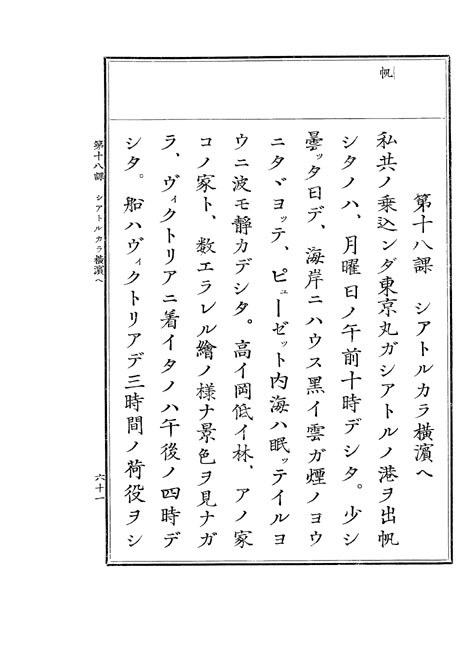 帆
第十八課 シアトルカラ橫濱へ
私共ノ乗込ンダ東京丸ガシアトルノ港ヲ出帆
シタノハ、月曜日ノ午前十時デシタ。少シ
曇ッタ日デ、海岸ニハウス黒イ雲ガ煙ノヨウ
ニタヾヨッテ、ピューゼット内海ハ眠ッテイルヨ
ウニ波モ靜カデシタ。高イ岡低イ林、アノ家
コノ家ト、数エラレル繪ノ様ナ景色ヲ見ナガ
ラ、ヴィクトリアニ着イタノハ午後ノ四時デ
シタ。船ハヴィクトリアデ三時間ノ荷役ヲシ
第十八課 シアトルカラ橫濱へ
六十一